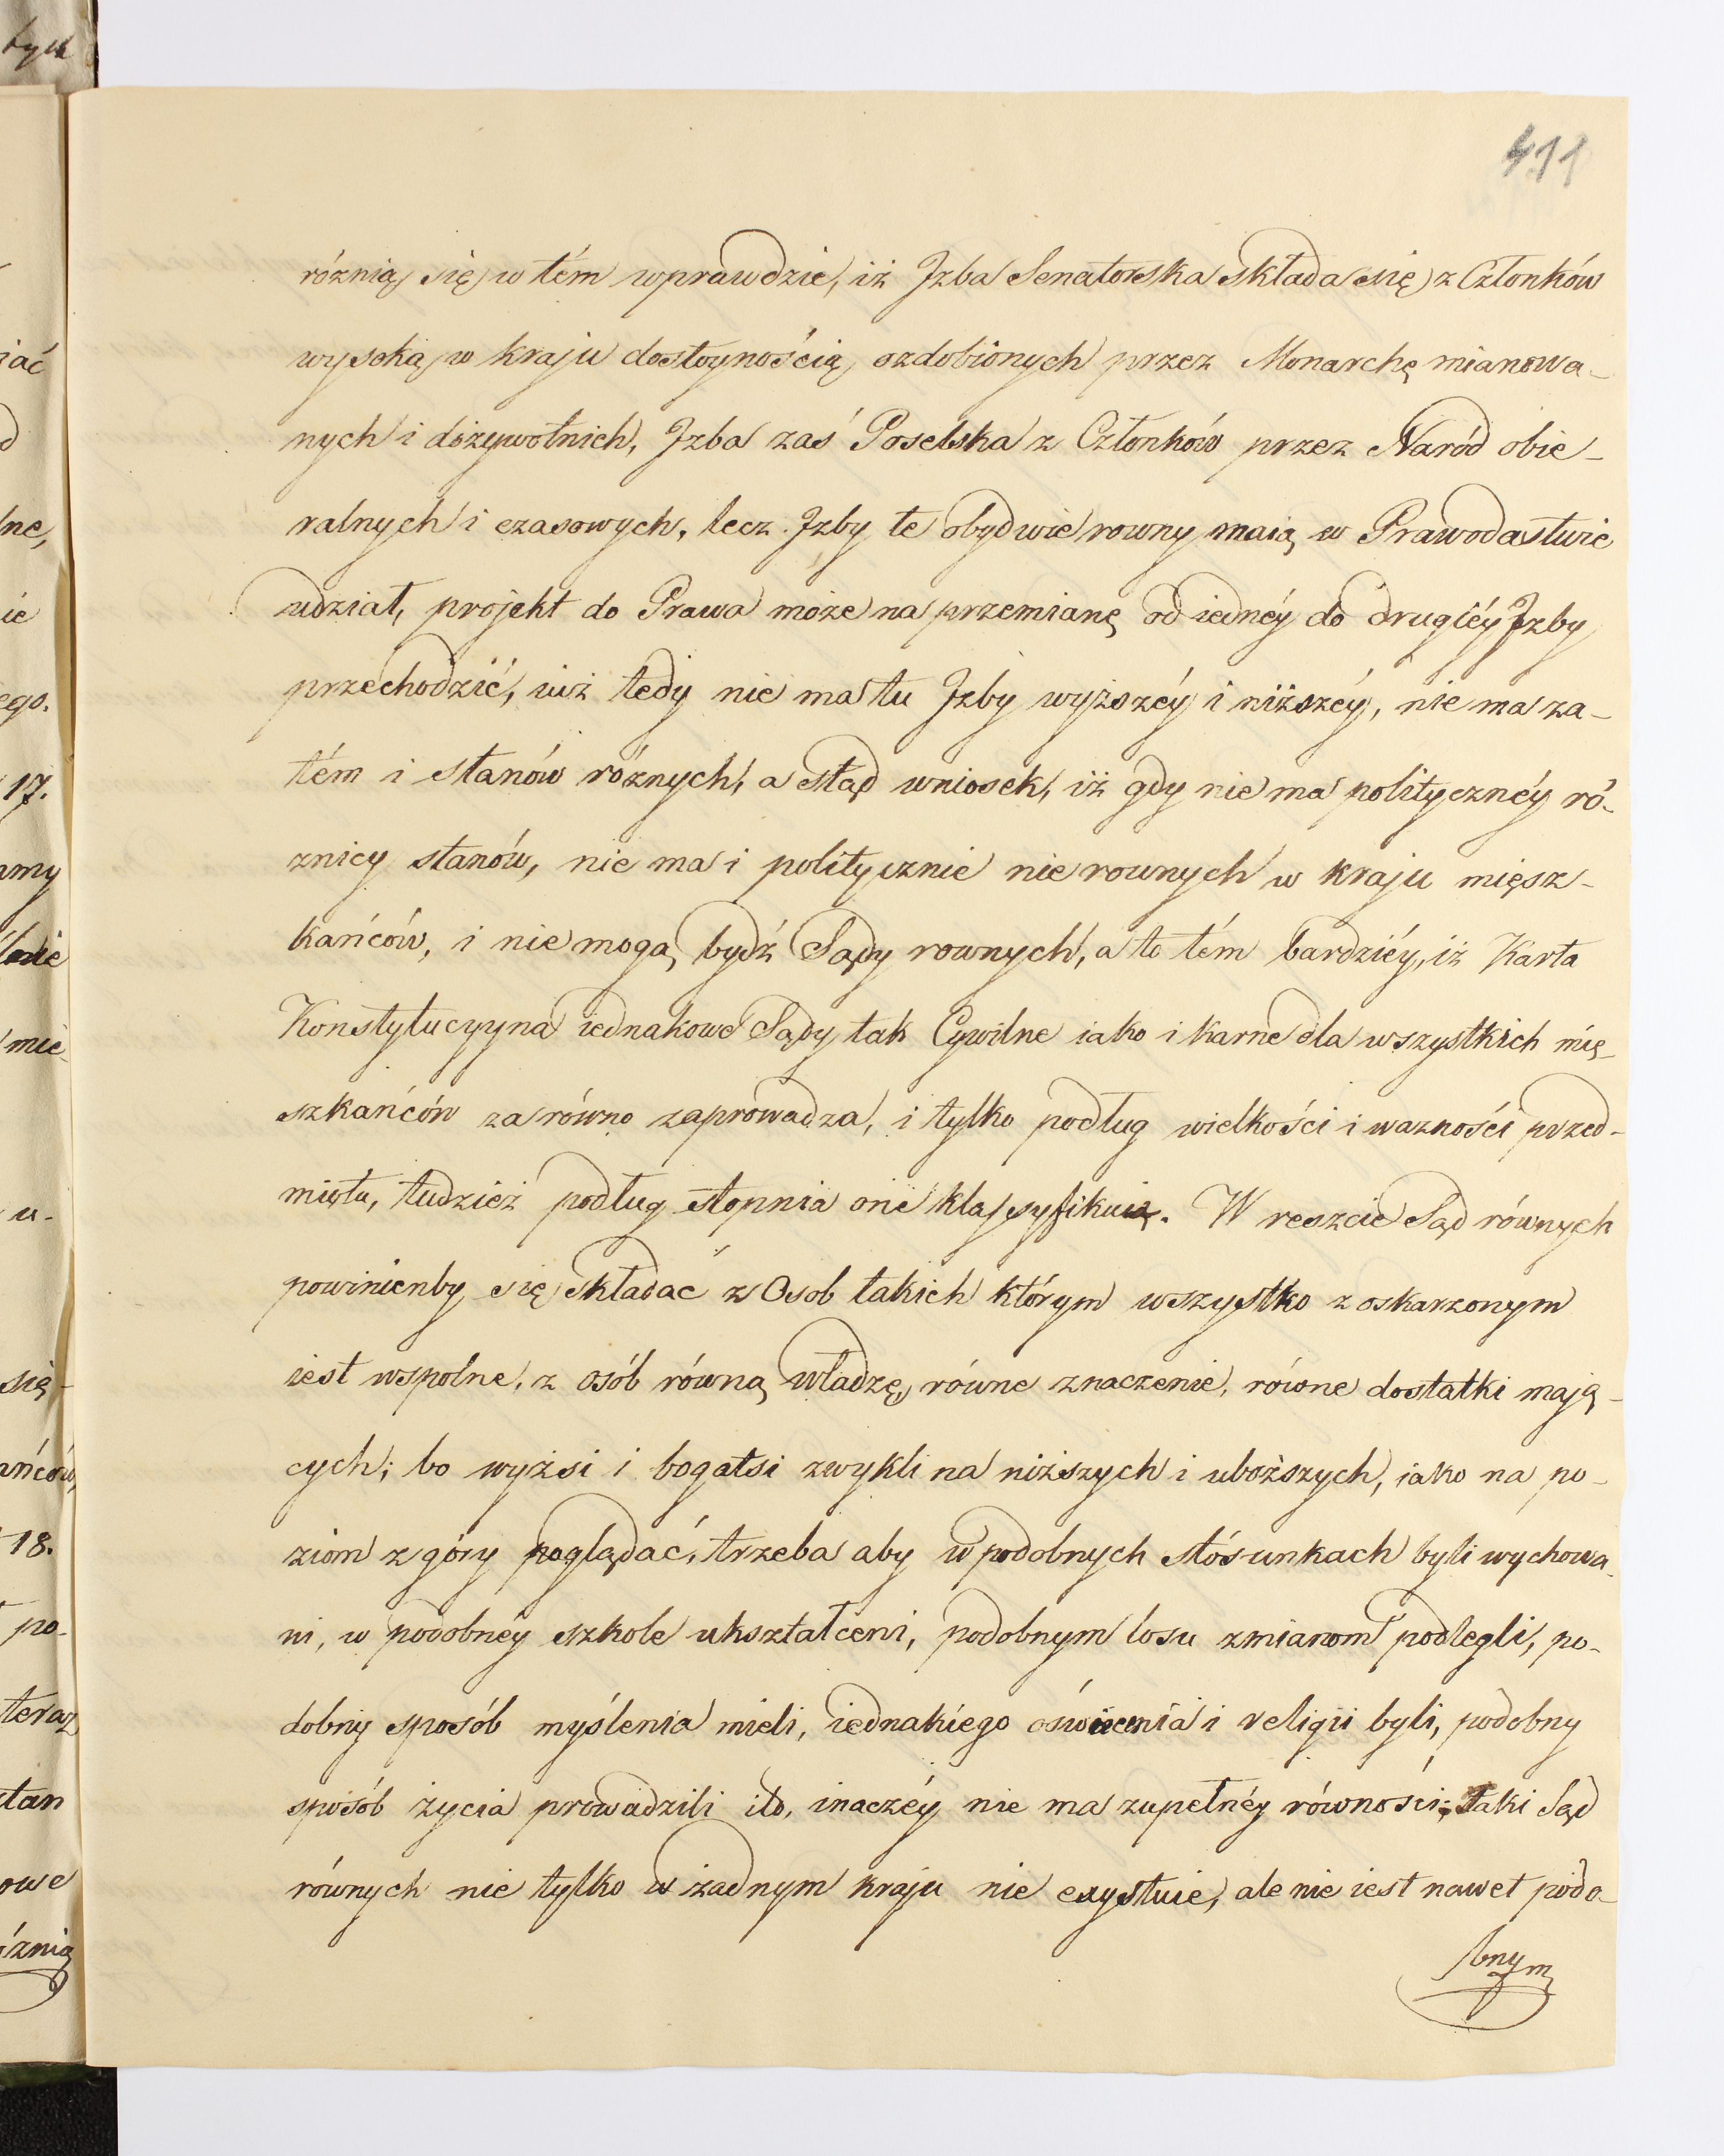 411
różnią się w tém wprawdzie, iż Jzba Senatorska składa się z Członków
wysoką w kraju dostoynością ozdobionych przez Monarchę mianowa-
nych i dożywotnich, Jzba zaś Poselska z Członków przez Naród obie-
ralnych i czasowych, lecz Jzby te obydwie rowny maią w Prawodastwie
udział, projekt do Prawa może na przemianę od iednéy do drugiéy Jzby
przechodzić, iuż tedy nie ma tu Jzby wyższéy i niższéy, nie ma za-
tém i stanów róznych, a stąd wniosek, iż gdy nie ma politycznéy ró-
znicy stanów, nie ma i politycznie nierownych w kraju mięsz-
kańców, i nie mogą bydź Sądy rownych, a to tém bardziéy, iż Karta
Konstytucyyna iednakowe Sądy tak Cywilne iako i karne dla wszystkich mię-
szkańców zarówno zaprowadza, i tylko podług wielkości i wazności przed-
miotu, tudzież podług stopnia one klassyfikuią. W reszcie Sąd równych
powinienby się składać z Osob takich którym wszystko z oskarzonym
iest wspolne, z osób równą władzę, równe znaczenie, równe dostatki mają-
cych; bo wyżsi i bogatsi zwykli na niższych i uboższych, iako na po-
ziom z góry poglądać, trzeba aby w podobnych stósunkach byli wychowa-
ni, w podobnéy szkole ukształceni, podobnym losu zmianom podlegli, po-
dobny sposób myślenia mieli, iednakiego oświecenia i religii byli, podobny
sposób życia prowadzili itd, inaczéy nie ma zupełnéy równości; Taki Sąd
równych nie tylko w żadnym kraju nie exystuie, ale nie iest nawet podo-
bnym